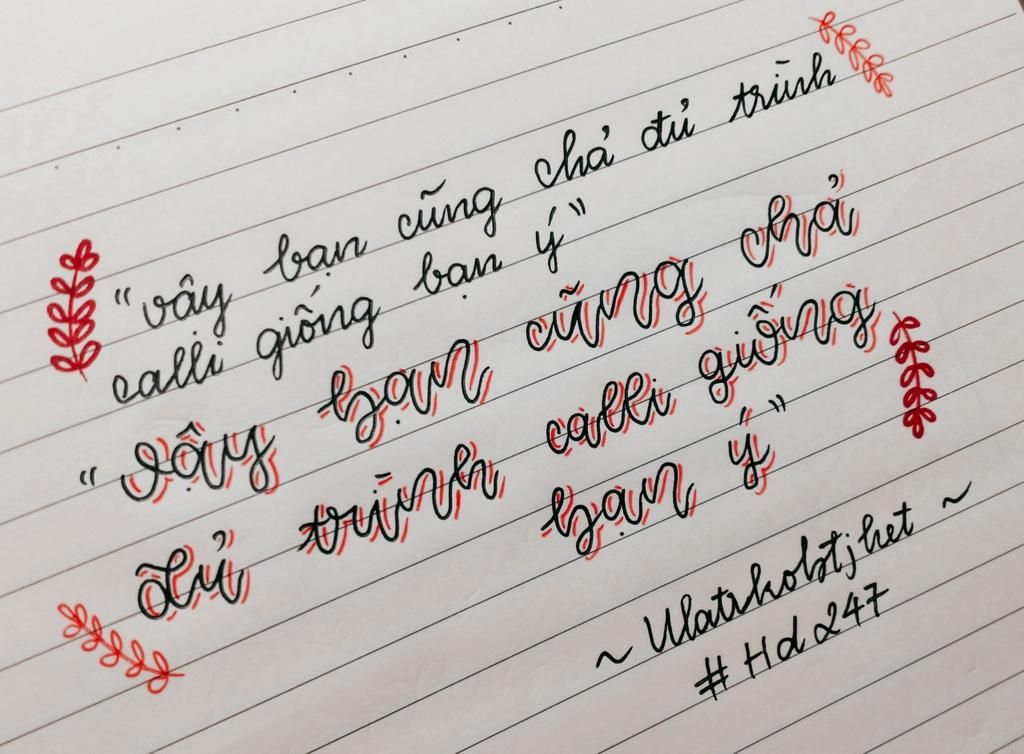 "vây bạn cũng chả đủ trình
calli giống bạn ý"
"vậy bạn cũng chả
đủ trình calli giống
bạn ý"
~ Ulatrkobtjhet ~
# Hd 247